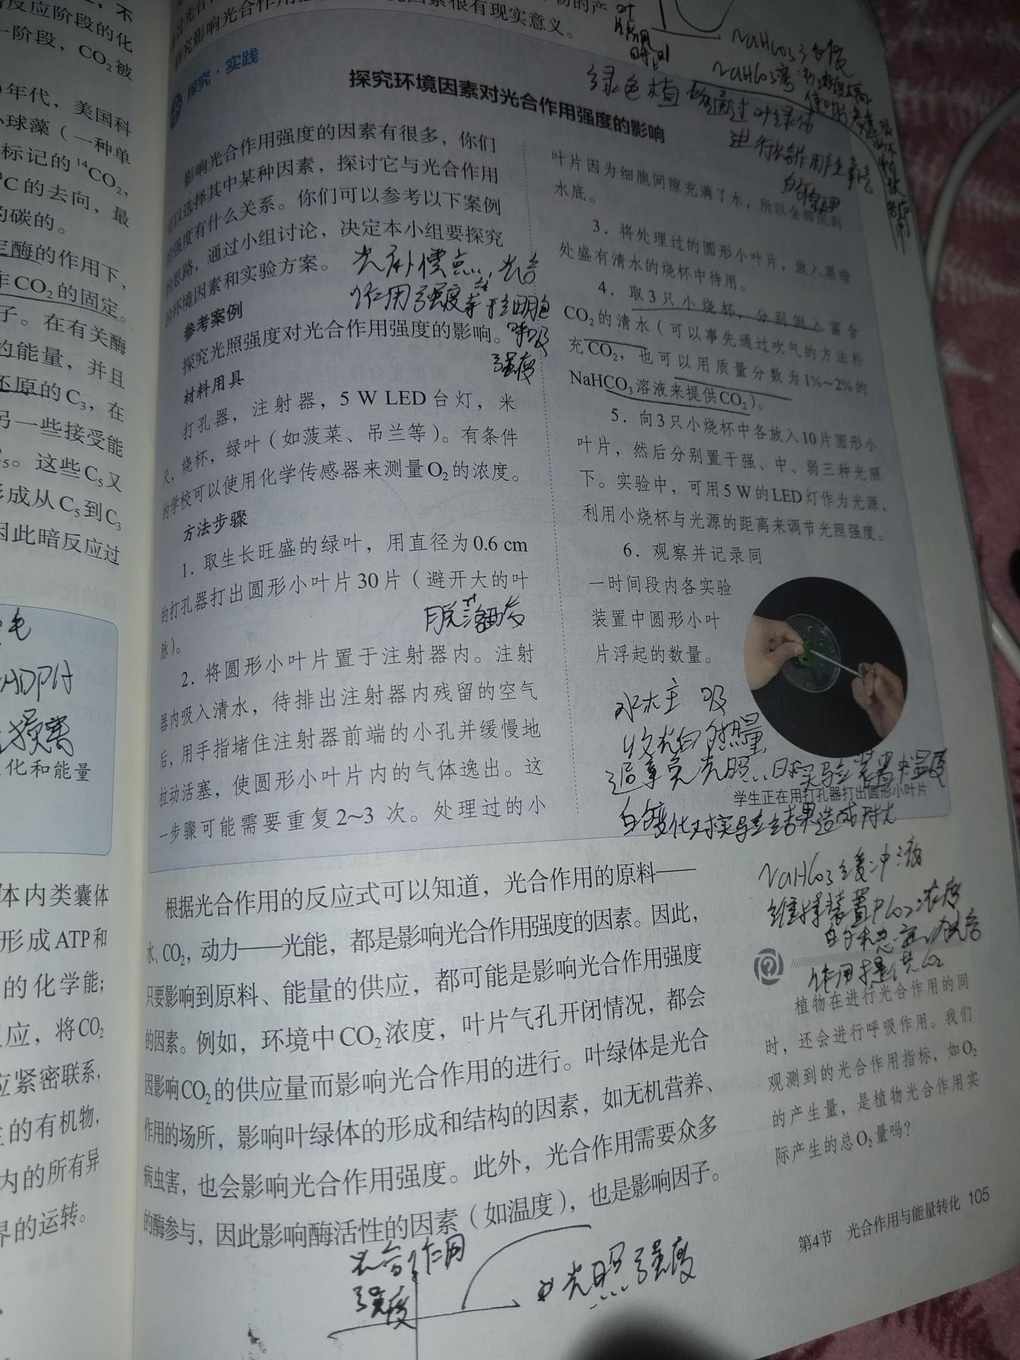 不
反应阶段的化
一阶段，CO₂被
年代，美国科
小球藻（一种单
标记的¹⁴CO₂，
℃的去向，最
的碳的。
定酶的作用下，
作CO₂的固定。
子。在有关酶
的能量，并且
还原的C₃，在
另一些接受能
C₅。这些C₅又
形成从C₅到C₃
因此暗反应过
ADPH
损害
化和能量
体内类囊体
形成ATP和
的化学能；
应，将CO₂
应紧密联系，
的有机物，
内的所有异
界的运转。
究影响光合作用
因素很有现实意义。
NaHCO₃
探究·实践
探究环境因素对光合作用强度的影响
绿色植物通过叶绿体
进行光合作用产生氧气
影响光合作用强度的因素有很多，你们
可以选择其中某种因素，探讨它与光合作用
的强度有什么关系。你们可以参考以下案例
的思路，通过小组讨论，决定本小组要探究
的环境因素和实验方案。
光补偿点：光合
作用强度等于细胞
呼吸
强度
参考案例
探究光照强度对光合作用强度的影响。
材料用具
打孔器，注射器，5 W LED台灯，米
尺，烧杯，绿叶（如菠菜、吊兰等）。有条件
的学校可以使用化学传感器来测量O₂的浓度。
方法步骤
1. 取生长旺盛的绿叶，用直径为0.6 cm
的打孔器打出圆形小叶片30片（避开大的叶
脉）。
2. 将圆形小叶片置于注射器内。注射
器内吸入清水，待排出注射器内残留的空气
后，用手指堵住注射器前端的小孔并缓慢地
拉动活塞，使圆形小叶片内的气体逸出。这
一步骤可能需要重复2~3 次。处理过的小
叶片因为细胞间隙充满了水，所以全部沉到
水底。
3. 将处理过的圆形小叶片，放入黑暗
处盛有清水的烧杯中待用。
4. 取3只小烧杯，分别倒入富含
CO₂的清水（可以事先通过吹气的方法补
充CO₂，也可以用质量分数为1%~2%的
NaHCO₃溶液来提供CO₂）。
5. 向3只小烧杯中各放入10片圆形小
叶片，然后分别置于强、中、弱三种光照
下。实验中，可用5 W的LED灯作为光源，
利用小烧杯与光源的距离来调节光照强度。
6. 观察并记录同
一时间段内各实验
装置中圆形小叶
片浮起的数量。
水大主 吸
收光的热量
避免光照对实验装置中温度
的变化对实验结果造成影响
学生正在用打孔器打出圆形小叶片
根据光合作用的反应式可以知道，光合作用的原料——
水、CO₂，动力——光能，都是影响光合作用强度的因素。因此，
只要影响到原料、能量的供应，都可能是影响光合作用强度
的因素。例如，环境中CO₂浓度，叶片气孔开闭情况，都会
因影响CO₂的供应量而影响光合作用的进行。叶绿体是光合
作用的场所，影响叶绿体的形成和结构的因素，如无机营养、
病虫害，也会影响光合作用强度。此外，光合作用需要众多
的酶参与，因此影响酶活性的因素（如温度），也是影响因子。
NaHCO₃缓冲液
维持装置中CO₂浓度
的相对稳定，为光合
作用提供CO₂
植物在进行光合作用的同
时，还会进行呼吸作用。我们
观测到的光合作用指标，如O₂
的产生量，是植物光合作用实
际产生的总O₂量吗？
光合作用
强度
光照强度
第4节 光合作用与能量转化 105